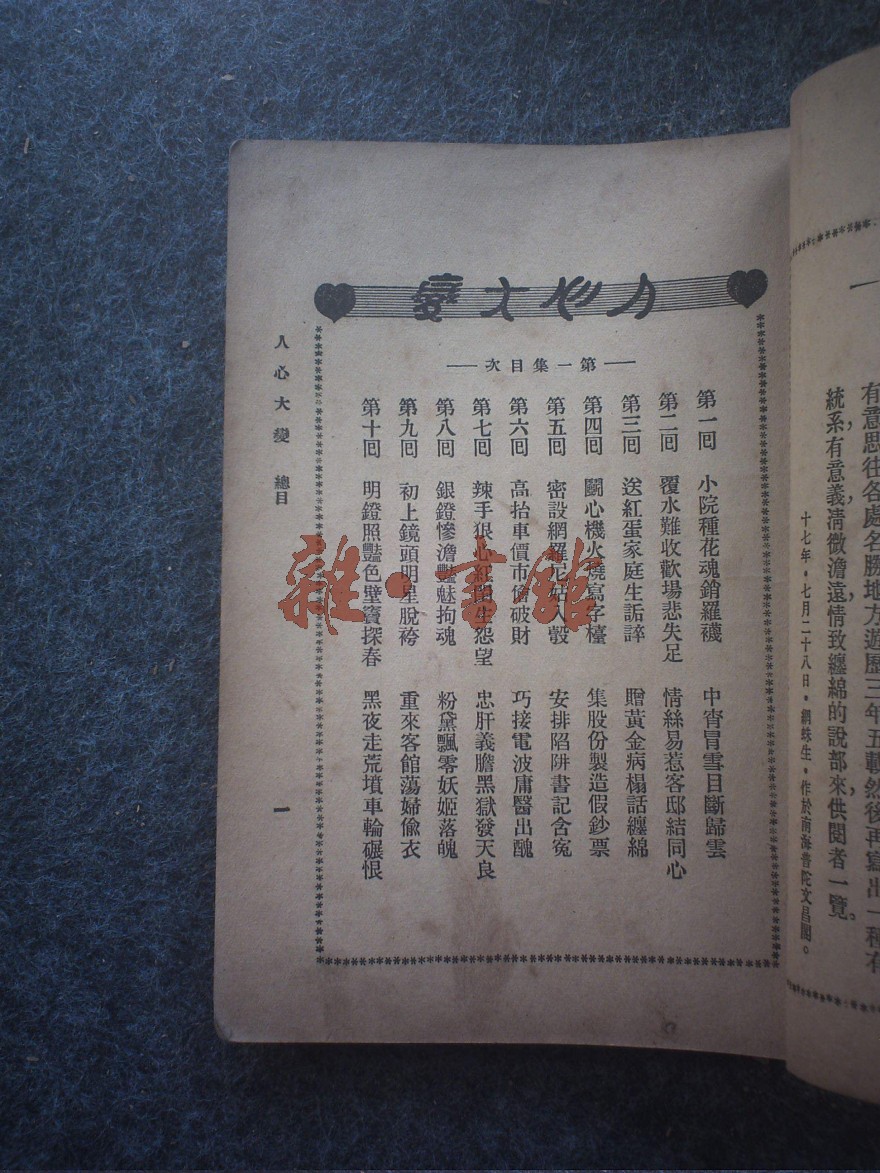 有意思往各處名勝地方遊歷三年五載然後再寫出一種有
統系有意義淸微澹遠情致纏綿的說部來供閱者一覽。
十七年・七月二十八日・網蛛生・作於南海普陀文昌閣。
人心大變
第一集目次
第一回 小院種花魂銷羅襪 中宵冒雪目斷歸雲
第二回 覆水難收歡場悲失足 情絲易惹客邸結同心
第三回 送紅蛋家庭生詬誶 贈黃金病榻話纏綿
第四回 鬭心機火燒寫字檯 集股份製造假鈔票
第五回 密設網羅尼姑入彀 安排陷阱書記含寃
第六回 高抬車價市儈破財 巧接電波庸醫出醜
第七回 辣手狠心紅閨生怨望 忠肝義膽黑獄發天良
第八回 銀鐙慘澹豔魅拘魂 粉黛飄零妖姬落魄
第九回 初上鏡頭明星脫袴 重來客館蕩婦偸衣
第十回 明鐙照豔色壁竇探春 黑夜走荒墳車輪碾恨
人心大變 總目
一
雜·書館